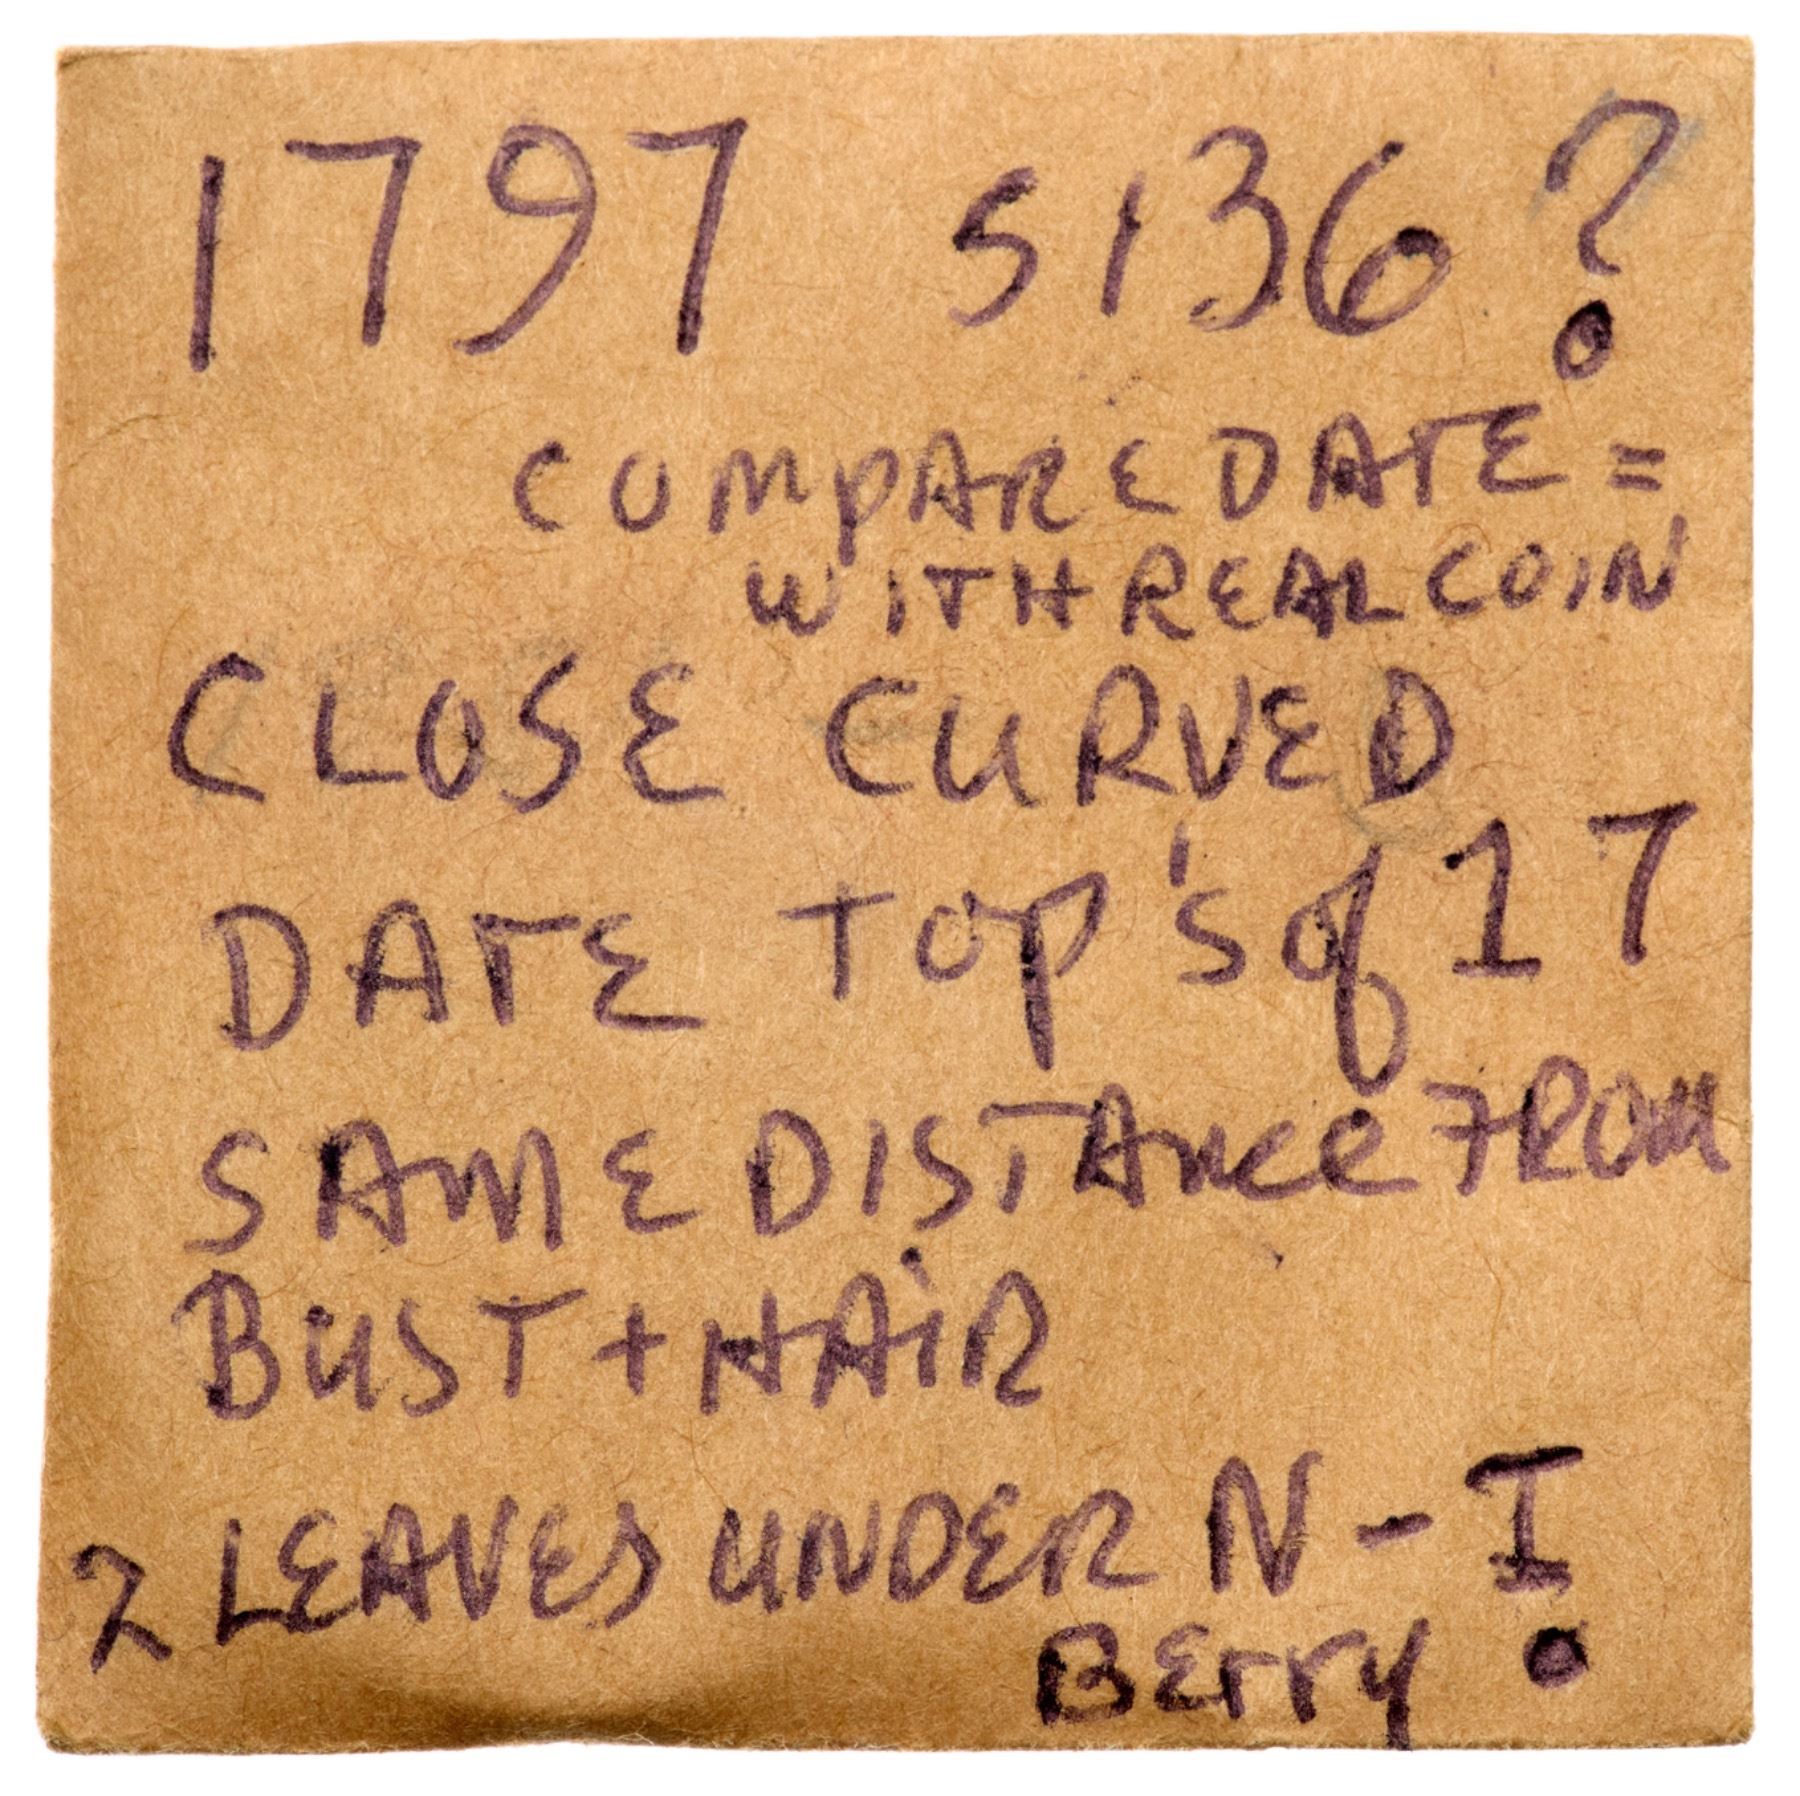 1797 S136?
COMPARE DATE =
WITH REAL COIN
CLOSE CURVED
DATE TOP'S of 17
SAME DISTANCE FROM
BUST + HAIR
2 LEAVES UNDER N - I
Berry •